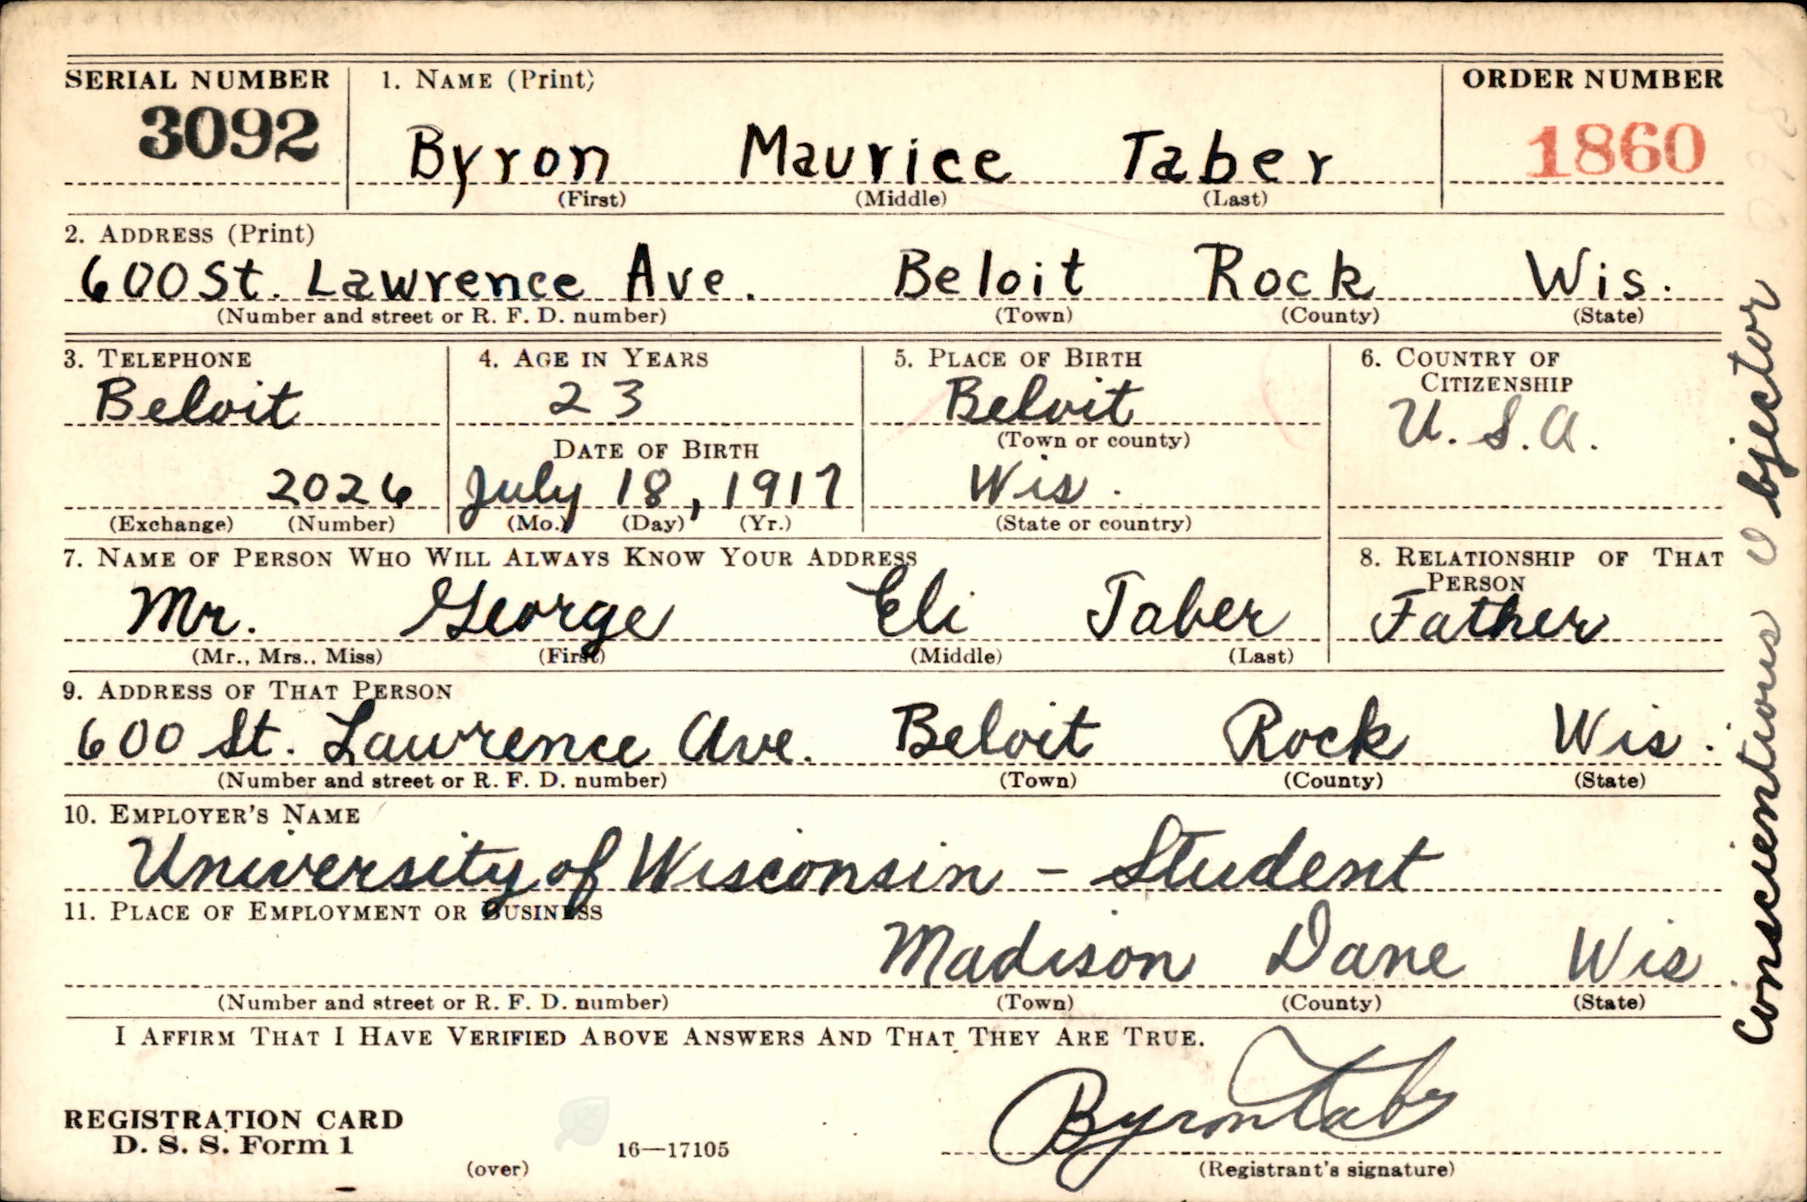 SERIAL NUMBER 1. NAME (Print) ORDER NUMBER
3092 Byron Maurice Taber 1860
(First) (Middle) (Last)
2. ADDRESS (Print)
600 St. Lawrence Ave. Beloit Rock Wis.
(Number and street or R. F. D. number) (Town) (County) (State)
3. TELEPHONE 4. AGE IN YEARS 5. PLACE OF BIRTH 6. COUNTRY OF CITIZENSHIP
Beloit 23 Beloit U.S.A.
(Town or county)
DATE OF BIRTH
2026 July 18, 1917 Wis.
(Exchange) (Number) (Mo.) (Day) (Yr.) (State or country)
7. NAME OF PERSON WHO WILL ALWAYS KNOW YOUR ADDRESS 8. RELATIONSHIP OF THAT PERSON
Mr. George Eli Taber Father
(Mr., Mrs., Miss) (First) (Middle) (Last)
9. ADDRESS OF THAT PERSON
600 St. Lawrence Ave. Beloit Rock Wis.
(Number and street or R. F. D. number) (Town) (County) (State)
10. EMPLOYER'S NAME
University of Wisconsin - Student
11. PLACE OF EMPLOYMENT OR BUSINESS
Madison Dane Wis
(Number and street or R. F. D. number) (Town) (County) (State)
I AFFIRM THAT I HAVE VERIFIED ABOVE ANSWERS AND THAT THEY ARE TRUE.
Byron Taber
REGISTRATION CARD
D. S. S. Form 1
(over) 16—17105 (Registrant's signature)
Conscientious Objector